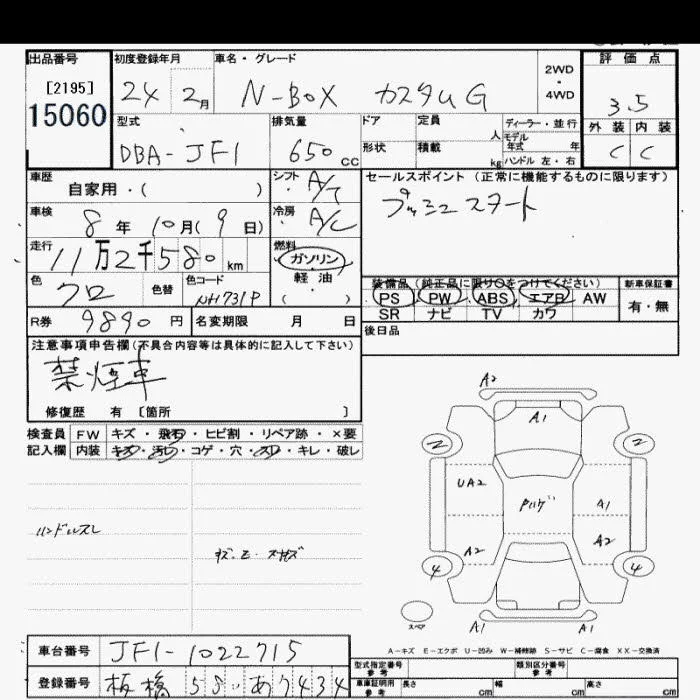 出品番号 初度登録年月 車名・グレード 2WD・4WD 評価点
[2195]
15060
24年 2月 N-BOX カスタムG 3.5
型式 排気量 ドア 定員 人 ディーラー・並行 外装 内装
DBA-JF1 650cc 形状 積載 kg モデル年式 年 ハンドル 左・右 C C
車歴 自家用・( ) シフト A/T セールスポイント (正常に機能するものに限ります)
車検 8年 10月(9日) 冷房 A/C プッシュスタート
走行 11万2千580km 燃料 ガソリン・軽油・( )
色 クロ 色替 色コード NH731P
装備品 (純正品に限り○をつけてください) 新車保証書
PS PW ABS エアB AW 有・無
SR ナビ TV カワ
R券 9890円 名変期限 月 日 後日品
注意事項申告欄(不具合内容等は具体的に記入して下さい)
禁煙車
修復歴 有 〔箇所 〕
検査員 FW キズ・飛石・ヒビ割・リペア跡・×要
記入欄 内装 キズ・汚れ・コゲ・穴・スレ・キレ・破レ
ハンドルスレ
A2
A1
2 2
UA2
A1
A2 A2
4 4
スペア
A1 A1
A-キズ E-エクボ U-凹み W-補修跡 S-サビ C-腐食 XX-交換済
車台番号 JF1-1022715
型式指定番号 参考 類別区分番号 参考
登録番号 板橋 58 あ7434
車庫証明用 参考 長さ cm 幅 cm 高さ cm